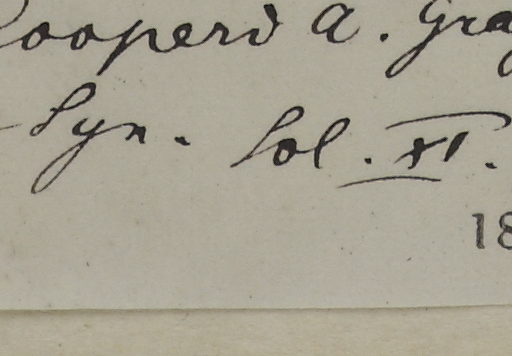 Cooperi A. Gray
Syn. Col. XI.
18